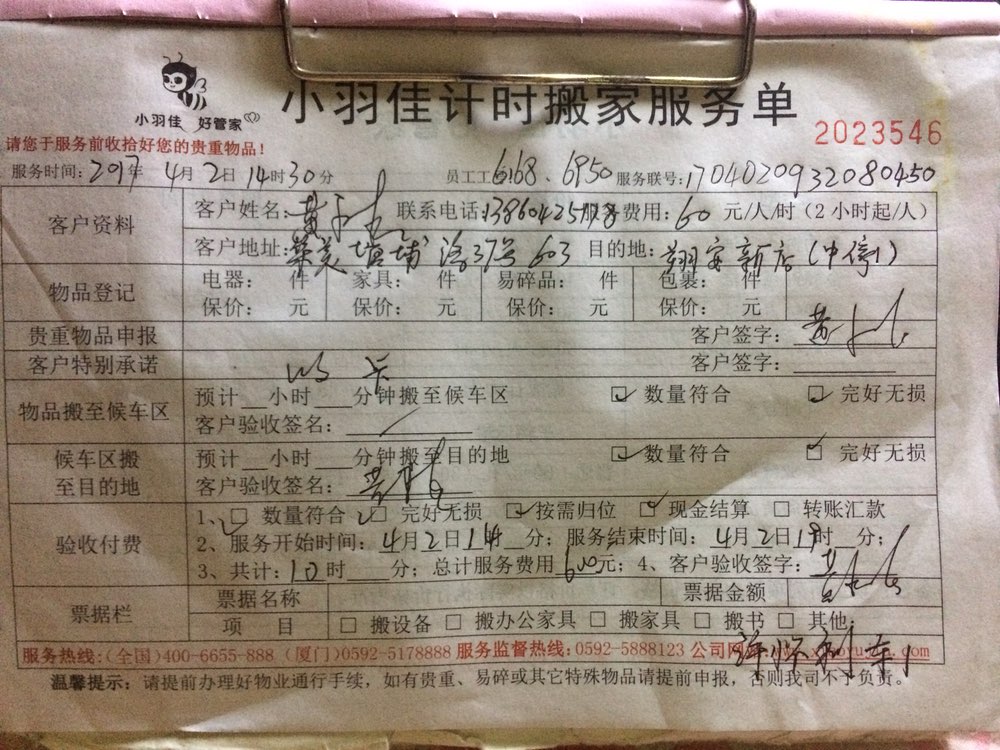 小羽佳 好管家
小羽佳计时搬家服务单
2023546
请您于服务前收拾好您的贵重物品!
服务时间: 2017年 4月2日14时30分 员工工 6168、6950 服务联号:1704020932080450
客户资料
客户姓名: 黄 联系电话:13860425 服务费用: 60 元/人/时(2小时起/人)
客户地址: 603 目的地: 翔安新店(中停1)
物品登记
电器: 件 家具: 件 易碎品: 件 包裹: 件
保价: 元 保价: 元 保价: 元 保价: 元
贵重物品申报 客户签字: 黄
客户特别承诺 客户签字:
物品搬至候车区
预计__小时___分钟搬至候车区 ☑ 数量符合 ☑ 完好无损
客户验收签名:
候车区搬至目的地
预计__小时___分钟搬至目的地 ☑ 数量符合 ☑ 完好无损
客户验收签名: 黄
验收付费
1、☑ 数量符合 ☑ 完好无损 ☑ 按需归位 ☑ 现金结算 □ 转账汇款
2、服务开始时间: 4月2日14时__分; 服务结束时间: 4月2日19时__分;
3、共计: 10时___分; 总计服务费用600元; 4、客户验收签字: 黄
票据栏
票据名称 票据金额
项 目 □ 搬设备 □ 搬办公家具 □ 搬家具 □ 搬书 □ 其他
服务热线:(全国)400-6655-888 (厦门)0592-5178888 服务监督热线:0592-5888123 公司网
温馨提示: 请提前办理好物业通行手续,如有贵重、易碎或其它特殊物品请提前申报,否则我司不予负责。